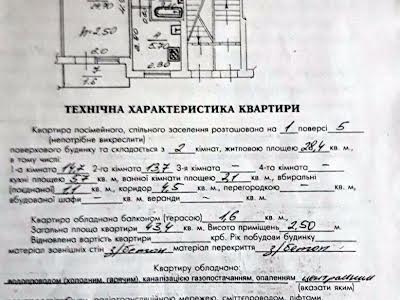 h=2,50
4
5.70
6.0
0.90
1.6
ТЕХНІЧНА ХАРАКТЕРИСТИКА КВАРТИРИ
Квартира посімейного, спільного заселення розташована на 1 поверсі 5
(непотрібне викреслити)
поверхового будинку та складається з 2 кімнат, житловою площею 28,4 кв. м.,
в тому числі:
1-а кімната 14,7 2-га кімната 13,7 3-я кімната – 4-та кімната –
кухні площею 5,7 кв. м., ванної кімнати площею 2,1 кв. м., вбиральні
(поєднаної) 1,1 кв. м., коридор 4,5 кв. м., перегородкою — кв. м.,
вбудованої шафи — кв. м. веранди — кв. м.
Квартира обладнана балконом (терасою) 1,6 кв. м.,
Загальна площа квартири 43,4 кв. м. Висота приміщень 2,50 м.
Відновлена вартість квартири крб. Рік побудови будинку
матеріал зовнішніх стін з/бетон матеріал перекриття з/бетон
Квартиру обладнано:
водопроводом (холодним, гарячим), каналізацією газопостачанням, опаленням центральним
(вказати яким)
мережею, сміттєпроводом, ліфтами